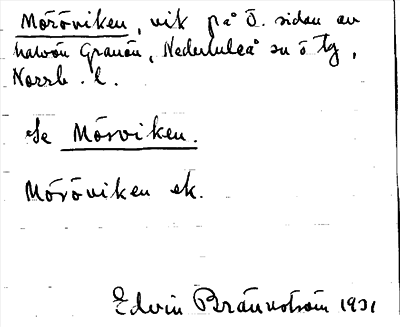 Moröviken, vik på ö. sidan av
halvön Granön, Nederluleå sn ö tg,
Norrb. l.
Se Mörviken.
Moröviken ek.
Edvin Brännström 1931